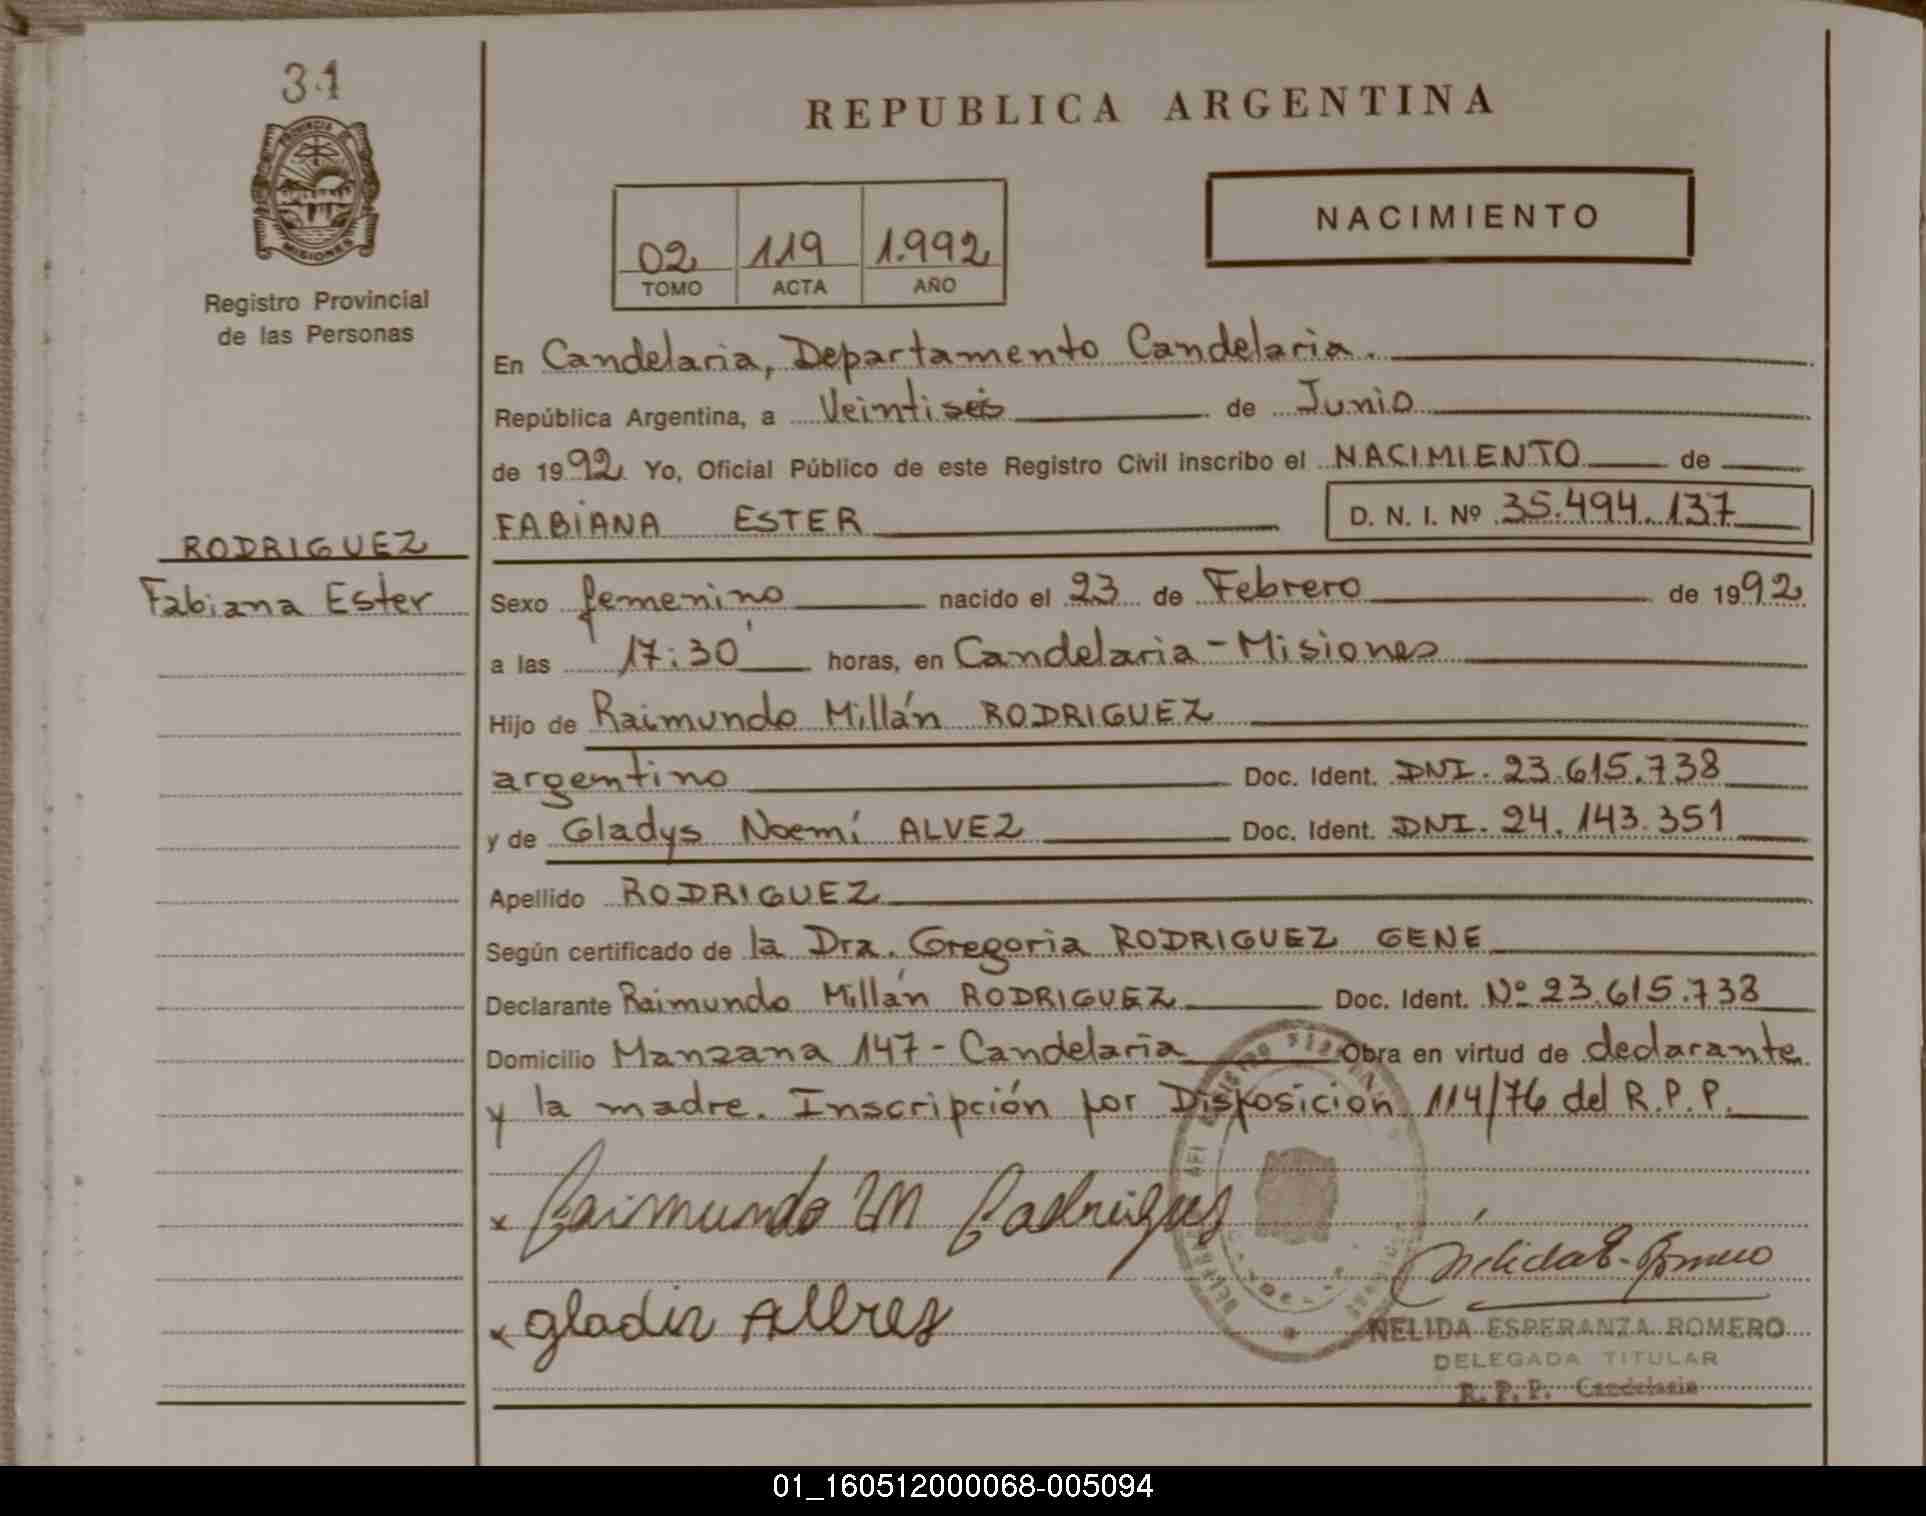 31
PROVINCIA
MISIONES
Registro Provincial
de las Personas
REPUBLICA ARGENTINA
02 119 1.992
TOMO ACTA AÑO
NACIMIENTO
En Candelaria, Departamento Candelaria.
República Argentina, a Veintiseis de Junio
de 1992 Yo, Oficial Público de este Registro Civil inscribo el NACIMIENTO de
FABIANA ESTER D. N. I. Nº 35.494.137
RODRIGUEZ
Fabiana Ester
Sexo femenino nacido el 23 de Febrero de 1992
a las 17:30 horas, en Candelaria - Misiones
Hijo de Raimundo Millán RODRIGUEZ
argentino Doc. Ident. DNI. 23.615.738
y de Gladys Noemí ALVEZ Doc. Ident. DNI. 24.143.351
Apellido RODRIGUEZ
Según certificado de la Dra. Gregoria RODRIGUEZ GENE
Declarante Raimundo Millán RODRIGUEZ Doc. Ident. Nº 23.615.738
Domicilio Manzana 147 - Candelaria Obra en virtud de declarante
y la madre. Inscripción por Disposición 114/76 del R.P.P.
x Raimundo M Rodriguez
Nelida E. Romero
x gladis Allvez
NELIDA ESPERANZA ROMERO
DELEGADA TITULAR
R. P. P. Candelaria
01_160512000068-005094